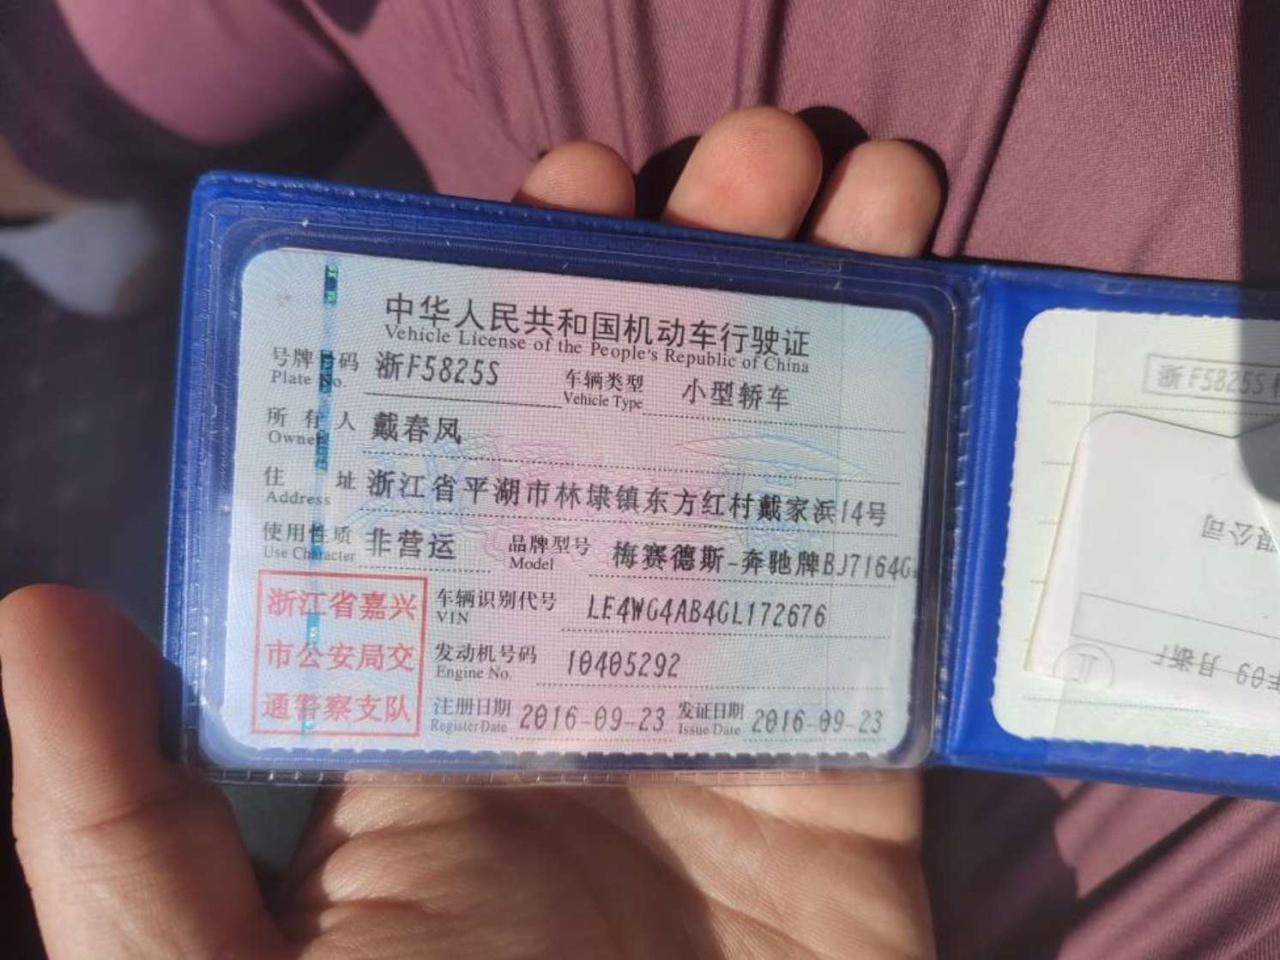 中华人民共和国机动车行驶证
Vehicle License of the People's Republic of China
号牌号码 浙F5825S 车辆类型 小型轿车
Plate No. Vehicle Type
所有人 戴春凤
Owner
住址 浙江省平湖市林埭镇东方红村戴家浜14号
Address
使用性质 非营运 品牌型号 梅赛德斯-奔驰牌BJ7164G
Use Character Model
浙江省嘉兴
市公安局交
通警察支队
车辆识别代号 LE4WG4AB4GL172676
VIN
发动机号码 10405292
Engine No.
注册日期 2016-09-23 发证日期 2016-09-23
Register Date Issue Date
浙F5825S
限公司